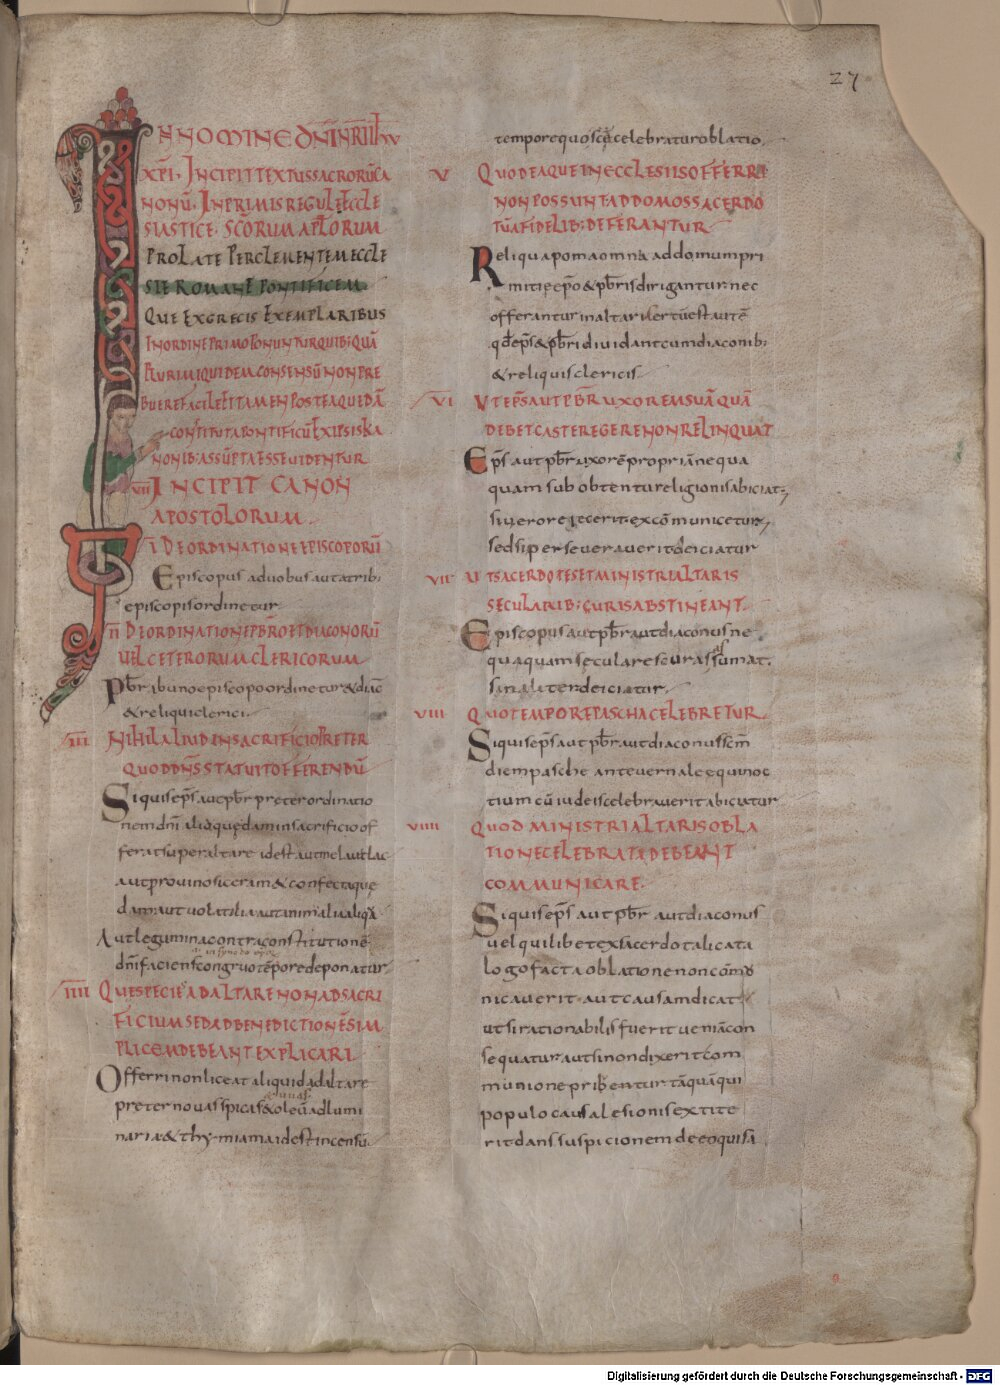 27
IN NOMINE DNI NRI IHV
XPI· INCIPIT TEXTUS SACRORU CA
NONU· INPRIMIS REGULE ECCLE
SIASTICE· SCORUM APLORUM
PROLATE PER CLEMENTEM ECCLE
SIE ROMANE PONTIFICEM
QUE EX GRECIS EXEMPLARIBUS
IN ORDINE PRIMO PONUNTUR QUIB; QUA
PLURIMI QUIDEM CONSENSU NON PRE
BUERE FACILE ET TAMEN POSTEA QUEDA
CONSTITUTA PONTIFICU EX IPSIS KA
NONIB; ASSUPTA ESSE UIDENTUR
VII INCIPIT CANON
APOSTOLORUM
I DE ORDINATIONE EPISCOPORU
Episcopus a duobus aut a trib;
episcopis ordinetur
II DE ORDINATIONE PBRO ET DIACONORU
UEL CETERORUM CLERICORUM
Pbr ab uno episcopo ordinetur & diac
& reliqui clerici
III NIHIL ALIUD IN SACRIFICIO PRETER
QUOD DNS STATUIT OFFERENDU
Si quis eps aut pbr preter ordinatio
nem dni alia quędam in sacrificio of
ferat super altare id est aut mel aut lac
aut pro uino sicera & confecta que
dam aut uolatilia aut animalia aliqa
Aut legumina contra constitutione
dni faciens congruo tepore deponatur
IIII QUE SPECIE AD ALTARE NON AD SACRI
FICIUM SED AD BENEDICTIONE SIM
PLICEM DEBEANT EXPLICARI
Offerri non liceat aliquid ad altare
& uuas
preter nouas spicas & oleu ad lumi
naria & thymiama id est incensu
tempore quo sca celebratur oblatio
V QUOD EA QUE IN ECCLESIIS OFFERRI
NON POSSUNT AD DOMOS SACERDO
TU A FIDELIB; DEFERANTUR
Reliqua poma omnia ad domum pri
mitię epo & pbris dirigantur nec
offerantur in altari certu est aute
qd eps & pbri diuidant cum diaconib;
& reliquis clericis
VI UT EPS AUT PBR UXOREM SUA QUA
DEBET CASTE REGERE NON RELINQUAT
Eps aut pbr uxore propria nequa
quam sub obtentu religionis abiciat;
si uero reiecerit· excomunicetur,
sed si perseuerauerit deiciatur
VII UT SACERDOTES ET MINISTRI ALTARIS
SECULARIB; CURIS ABSTINEANT
Episcopus aut pbr aut diaconus ne
quaquam seculares curas assumat·
sin aliter deiciatur
VIII QUO TEMPORE PASCHA CELEBRETUR
Si quis eps aut pbr aut diaconus scm
diem pasche ante uernale equinoc
tium cu iudeis celebrauerit abiciatur
VIIII QUOD MINISTRI ALTARIS OBLA
TIONE CELEBRATA DEBEANT
COMMUNICARE·
Si quis eps aut pbr aut diaconus
uel quilibet ex sacerdotali cata
logo facta oblatione non comu
nicauerit· aut causam dicat
ut si rationabilis fuerit uenia con
sequatur aut si non dixerit com
munione pribentur taqua qui
populo causa lesionis extite
rit dans suspicionem de eo qui sa
Digitalisierung gefördert durch die Deutsche Forschungsgemeinschaft - DFG